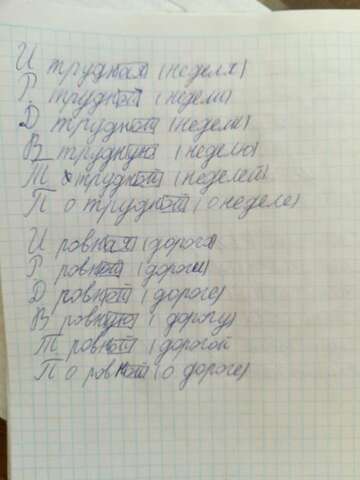 И трудная (неделя)
Р трудной (недели)
Д трудной (неделе)
В трудную (неделю)
Т трудной (неделей)
П о трудной (о неделе)
И ровная (дорога)
Р ровной (дороги)
Д ровной (дороге)
В ровную (дорогу)
Т ровной (дорогой
П о ровной (о дороге)